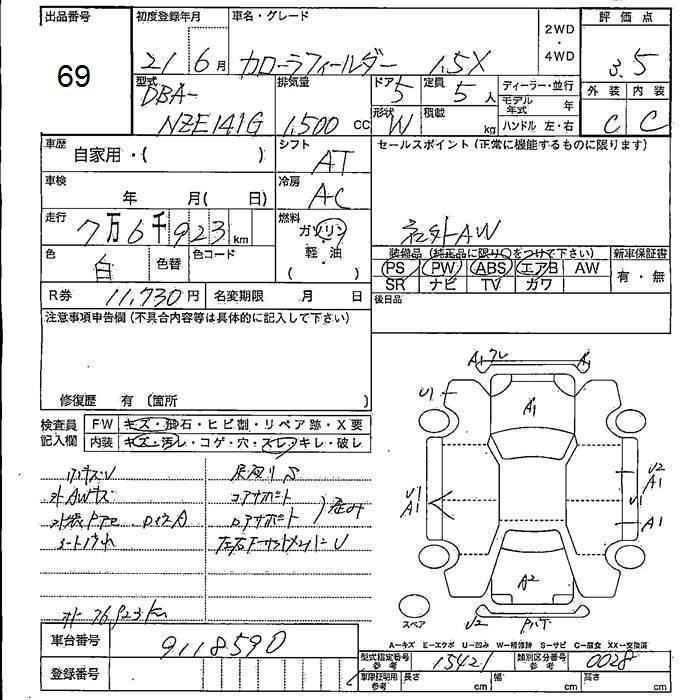 出品番号 初度登録年月 車名・グレード 2WD・4WD 評価点
69 21 6月 カローラフィールダー 1.5X 3.5
型式 排気量 ドア 5 定員 5人 ディーラー・並行 外装 内装
DBA-
NZE141G 1,500 cc 形状 W 積載 kg モデル年式 年 C C
ハンドル 左・右
車歴 自家用・( ) シフト AT セールスポイント(正常に機能するものに限ります)
車検 年 月( 日) 冷房 AC
走行 7万6千923km 燃料 ガソリン・軽・油 ( ) 社外AW
色 白 色替 色コード 装備品(純正品に限り○をつけて下さい) 新車保証書
PS PW ABS エアB AW 有・無
SR ナビ TV カワ
R券 11,730円 名変期限 月 日 後日品
注意事項申告欄(不具合内容等は具体的に記入して下さい)
修復歴 有 (箇所 )
検査員記入欄 FW キズ・飛石・ヒビ割・リペア跡・X要
内装 キズ・汚レ・コゲ・穴・スレ・キレ・破レ
外AWキズ
コアサポート
シートよごれ
A1 A1
U1 A1
U1 A1
U2 A1
U1
A1
A2
U2
スペア
A-キズ E-エクボ U-凹み W-補修跡 S-サビ C-腐食 XX-交換済
車台番号 9118590 型式指定番号 参考 15421 類別区分番号 参考 0028
登録番号 車庫証明用 参考 長さ cm 幅 cm 高さ cm